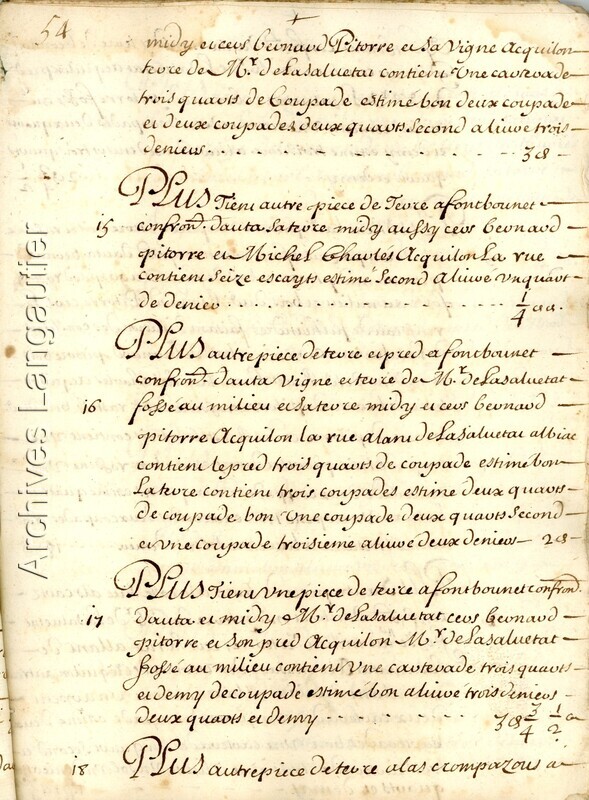 54
midy et cers bernard Pitorre et sa vigne Acquilon
terre de Mr. de Lasaluetat contient Une carterade
trois quarts de Coupade estimé bon deux coupade
et deux coupades deux quarts Second aliuré trois
deniers - - - - - - - 3 d -
PLus Tient autre piece de Terre a fontbounet
15 confrond. d'auta sa terre midy aussy cers bernard
pitorre et Michel Charles Acquilon La rue
contient seize escayts estimé Second Aliuré Un quart
de denier - - - - - - - 1/4 d
PLus autre piece de terre et pred a fontbounet
confrond. d'auta Vigne et terre de Mr. de Lasaluetat
16 fossé au milieu et sa terre midy et cers bernard
pitorre Acquilon la rue alant de Lasaluetat albiac
contient le pred trois quarts de coupade estimé bon
La terre contient trois coupades estimé deux quarts
de coupade bon Une coupade deux quarts Second
et Une coupade troisieme aliuré deux deniers - 2 d -
PLus Tient Une piece de terre a fontbounet confrond.
17 d'auta et midy Mr. de Lasaluetat cers bernard
pitorre et son pred Acquilon Mr. de Lasaluetat
fossé au milieu contient Une carterade trois quarts
et demy de coupade estimé bon aliuré trois deniers
deux quarts et demy - - - - - 3 d 3/4 1/2
18 PLus autre piece de terre a las crompazous
Archives Langautier